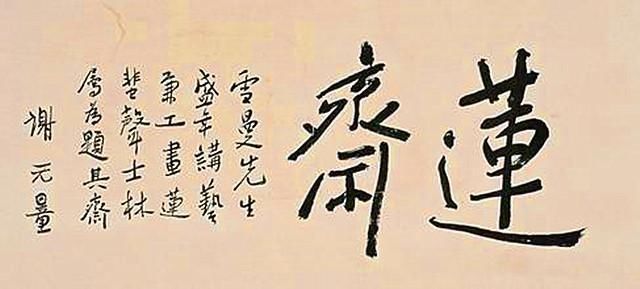 蓮齋
雪曼先生
盛年講藝
兼工畫蓮
蜚聲士林
屬為題其齋
謝无量